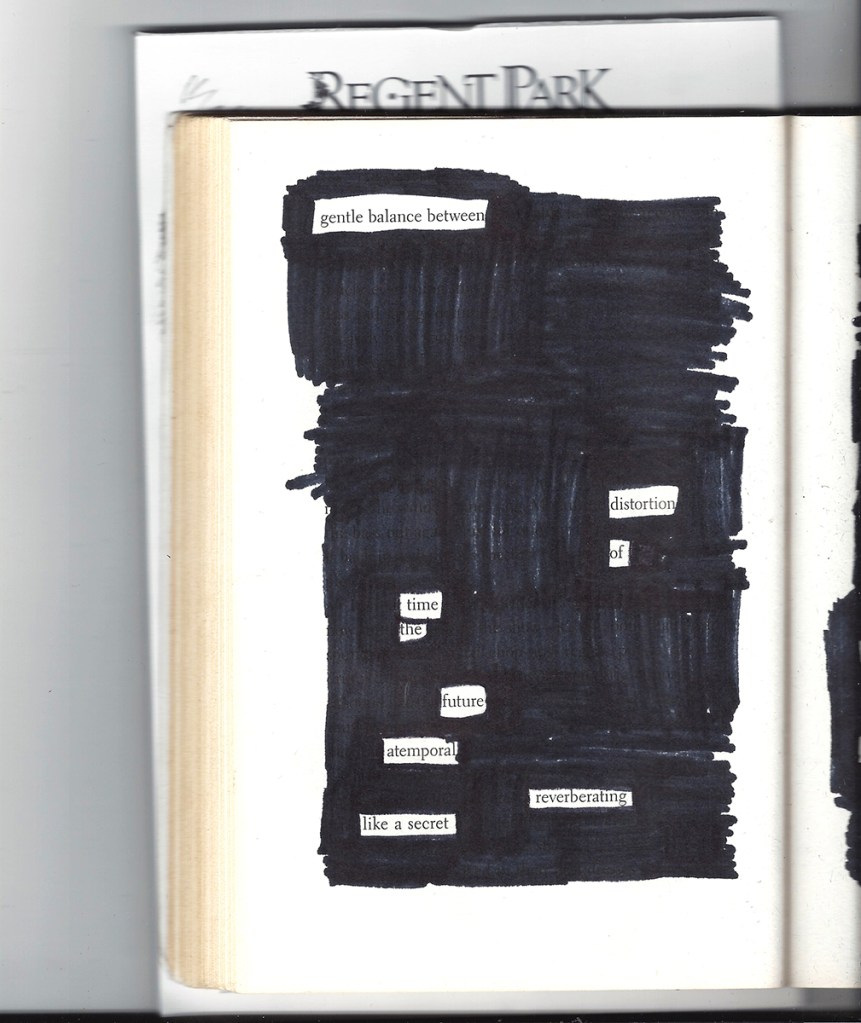 REGENT PARK
gentle balance between
distortion
of
time
the
future
atemporal
reverberating
like a secret